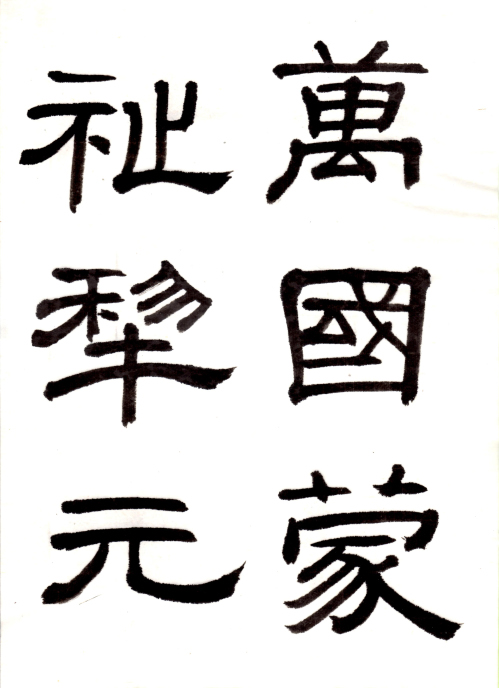 萬國蒙
祉犂元